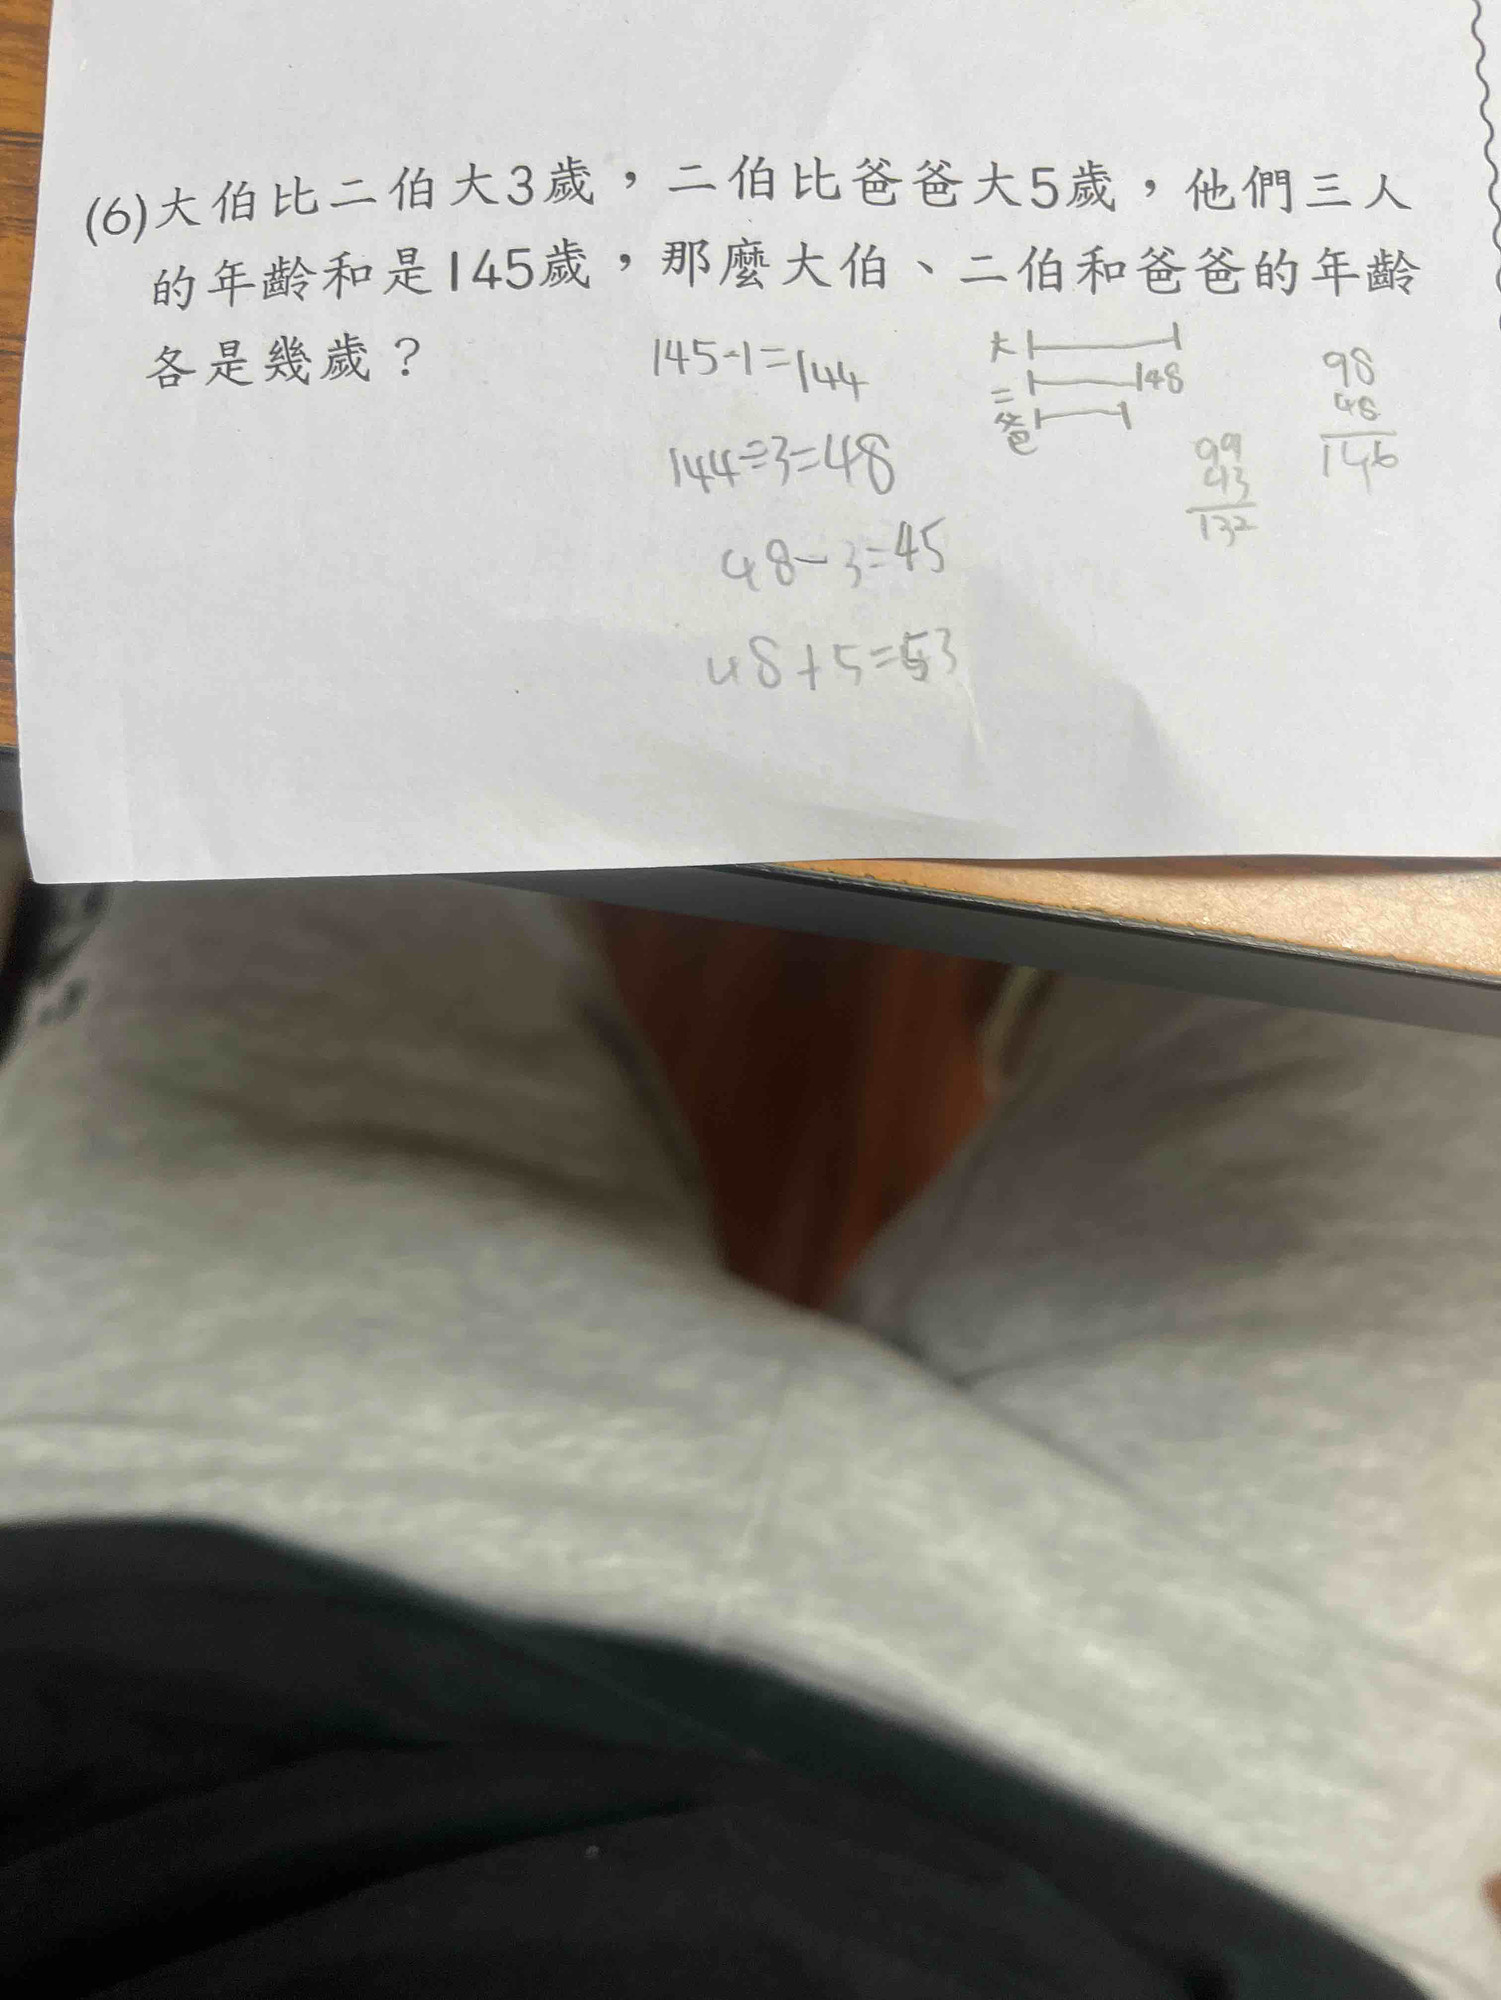 (6)大伯比二伯大3歲，二伯比爸爸大5歲，他們三人
的年齡和是145歲，那麼大伯、二伯和爸爸的年齡
各是幾歲？
145-1=144
144÷3=48
48-3=45
48+5=53
大
二 148
爸
99
43
132
98
48
146